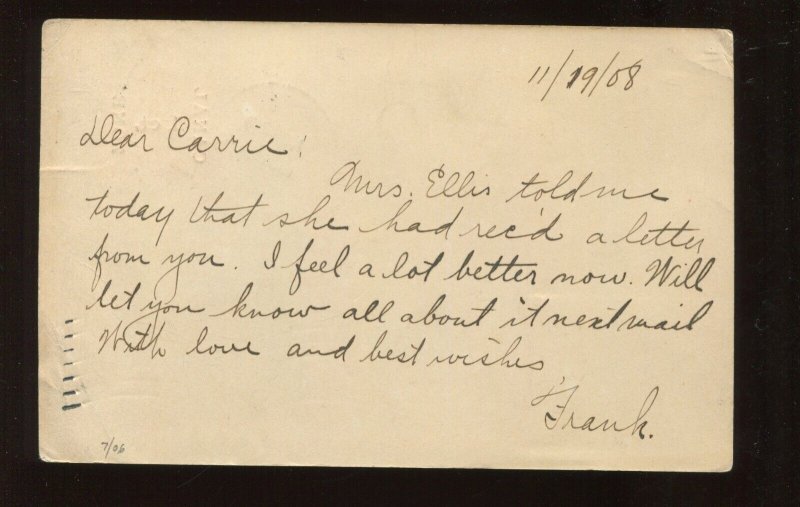 11/19/08
Dear Carrie:
Mrs. Ellis told me
today that she had rec'd a letter
from you. I feel a lot better now. Will
let you know all about it next mail
With love and best wishes
Frank.
7/06